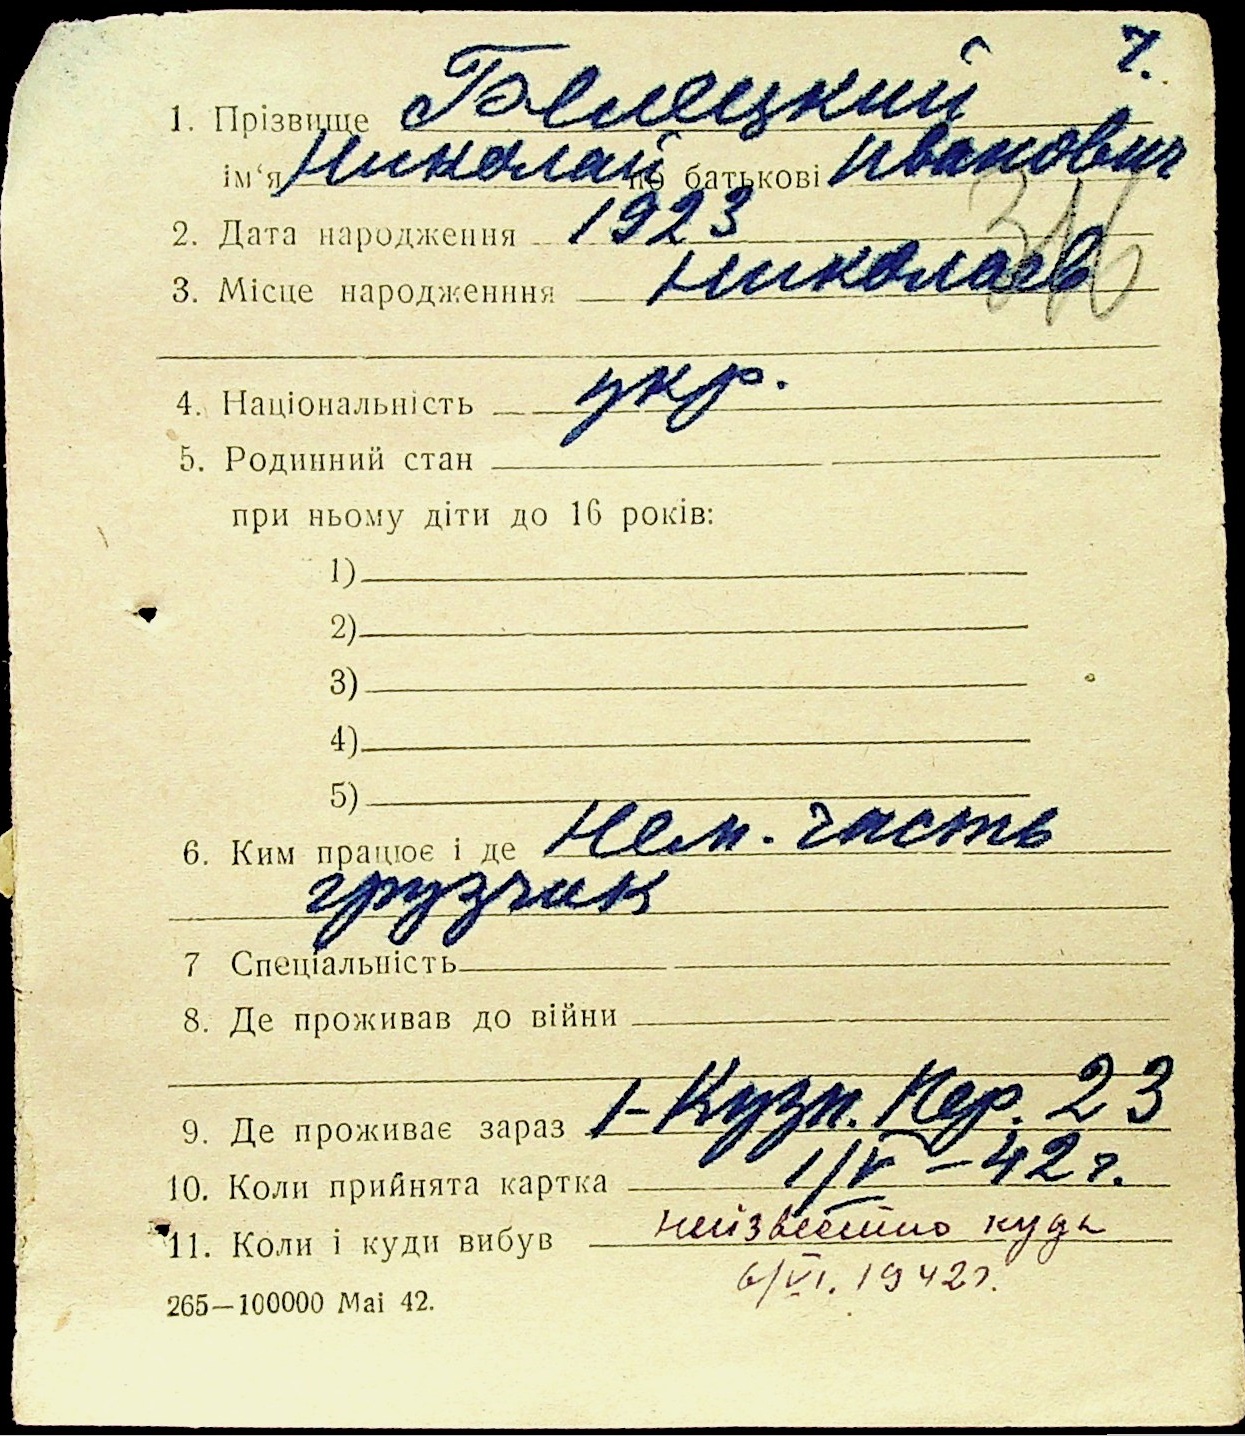 7.
1. Прізвище Белецкий
ім‘я Николай по батькові Иванович
2. Дата народження 1923
316
3. Місце народженння Николаев
4. Національність укр.
5. Родинний стан
при ньому діти до 16 років:
1)
2)
3)
4)
5)
6. Ким працює і де Нем. часть
грузчик
7 Спеціальність
8. Де проживав до війни
9. Де проживає зараз 1-Кузн. Пер. 23
10. Коли прийнята картка 1/V – 42 г.
11. Коли і куди вибув неизвестно куда
6/VI. 1942г.
265—100000 Mai 42.